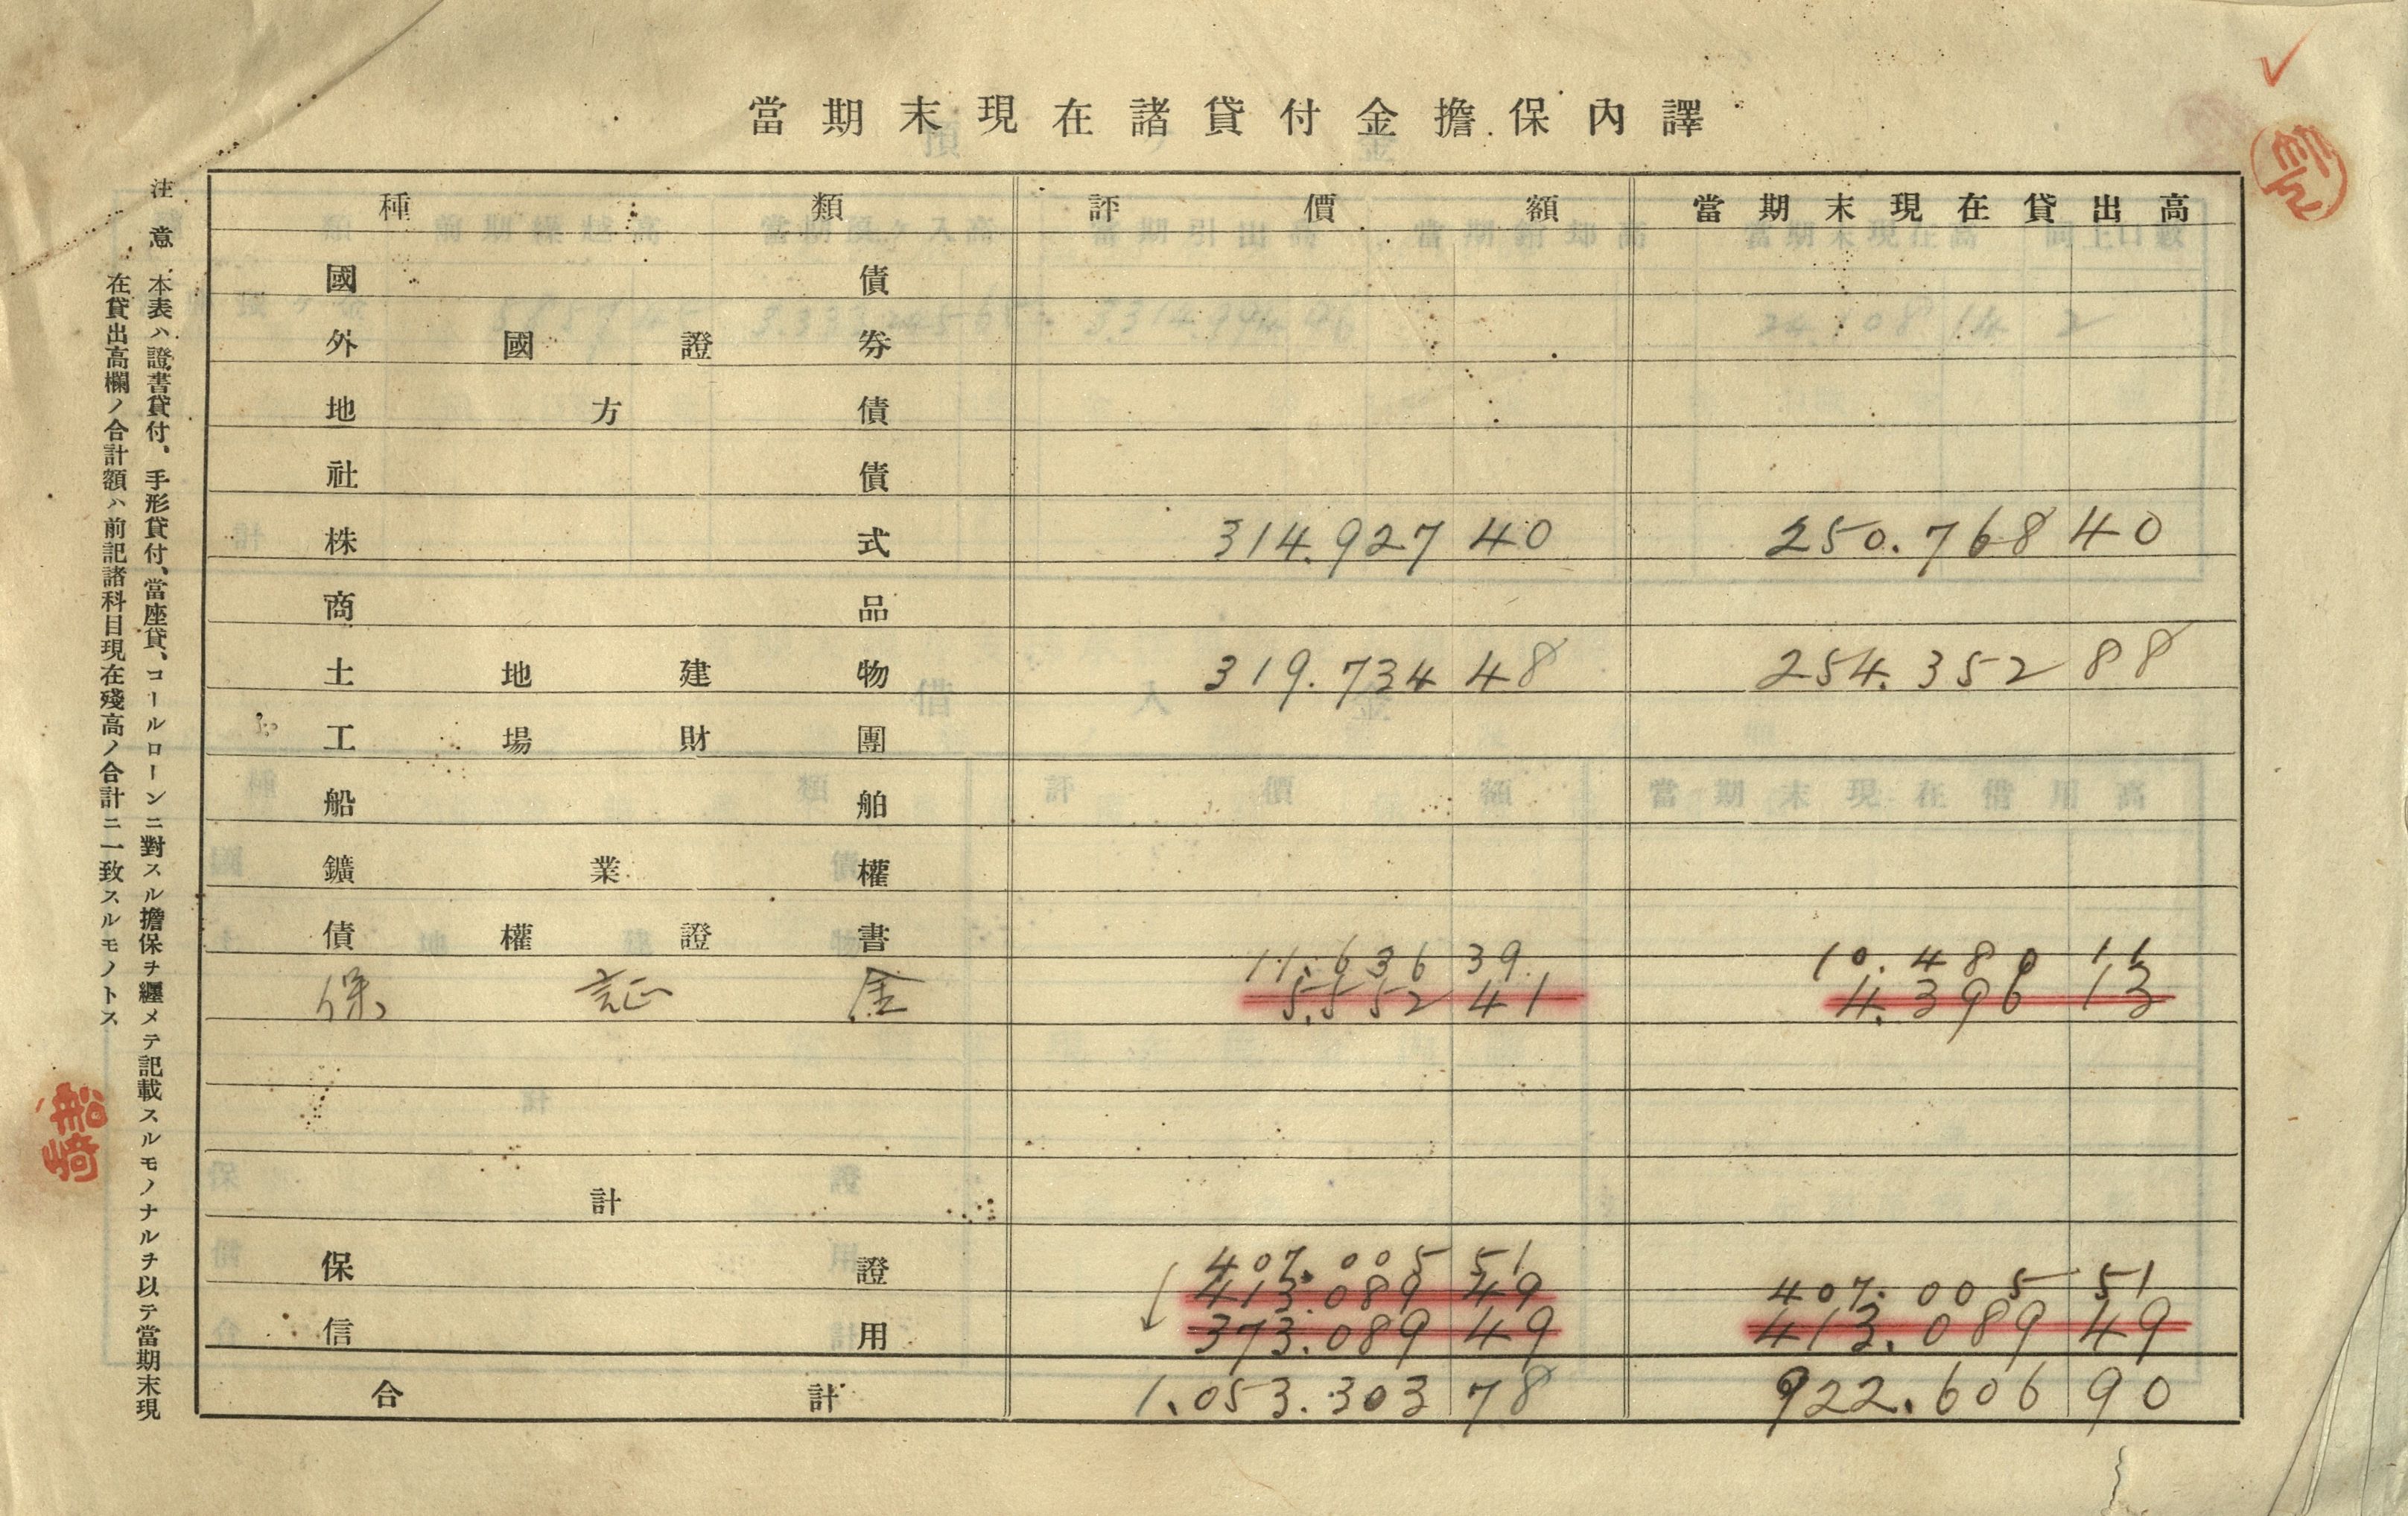 當期末現在諸貸付金擔保內譯
種類 評價額 當期末現在貸出高
國債
外國證券
地方債
社債
株式 314.927 40 250.768 40
商品
土地建物 319.734 48 254.352 88
工場財團
船舶
鑛業權
債權證書
11.636 39 10.480 11
保証金 5.552 41 4.396 13
計
保證 407.005 51
413.089 49 407.005 51
信用 373.089 49 413.089 49
合計 1.053.303 78 922.606 90
注意 本表ハ證書貸付、手形貸付、當座貸、コールローンニ對スル擔保ヲ纒メテ記載スルモノナルヲ以テ當期末現
在貸出高欄ノ合計額ハ前記諸科目現在殘高ノ合計ニ一致スルモノトス